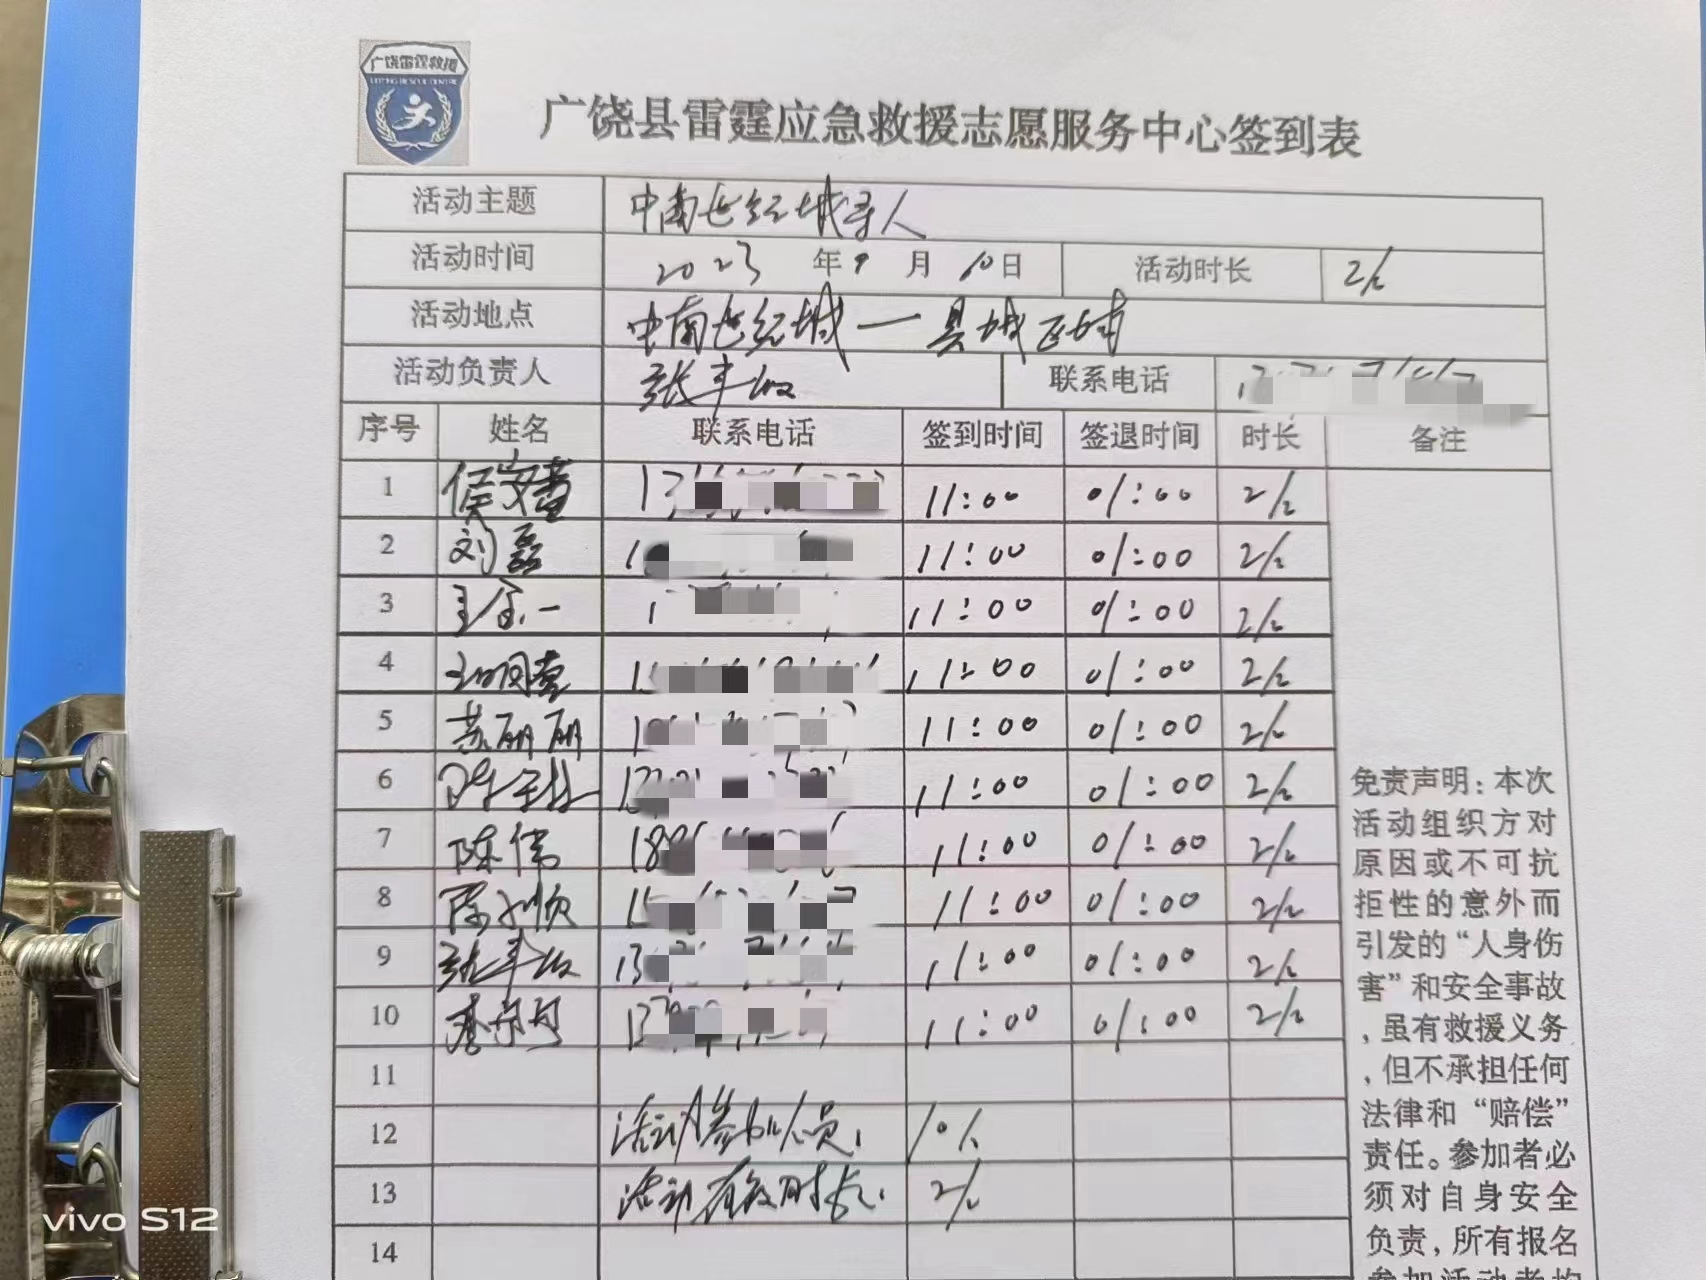 广饶雷霆救援
广饶县雷霆应急救援志愿服务中心签到表
活动主题 中南世纪城寻人
活动时间 2023 年 9 月 10 日 活动时长 2/h
活动地点 中南世纪城—县城区域
活动负责人 张丰 联系电话
序号 姓名 联系电话 签到时间 签退时间 时长 备注
1 侯安 13 11:00 01:00 2/h
2 刘磊 1 11:00 01:00 2/h
3 1 11:00 01:00 2/h
4 1 11:00 01:00 2/h
5 苏丽丽 1 11:00 01:00 2/h
6 陈 13 11:00 01:00 2/h
7 陈伟 18 11:00 01:00 2/h
8 顺 15 11:00 01:00 2/h
9 张丰 13 11:00 01:00 2/h
10 13 11:00 01:00 2/h
11
12 活动参加人员: 10人
13 活动有效时长: 2/h
14
免责声明:本次
活动组织方对
原因或不可抗
拒性的意外而
引发的“人身伤
害”和安全事故
,虽有救援义务
,但不承担任何
法律和“赔偿”
责任。参加者必
须对自身安全
负责,所有报名
参加活动者均
vivo S12